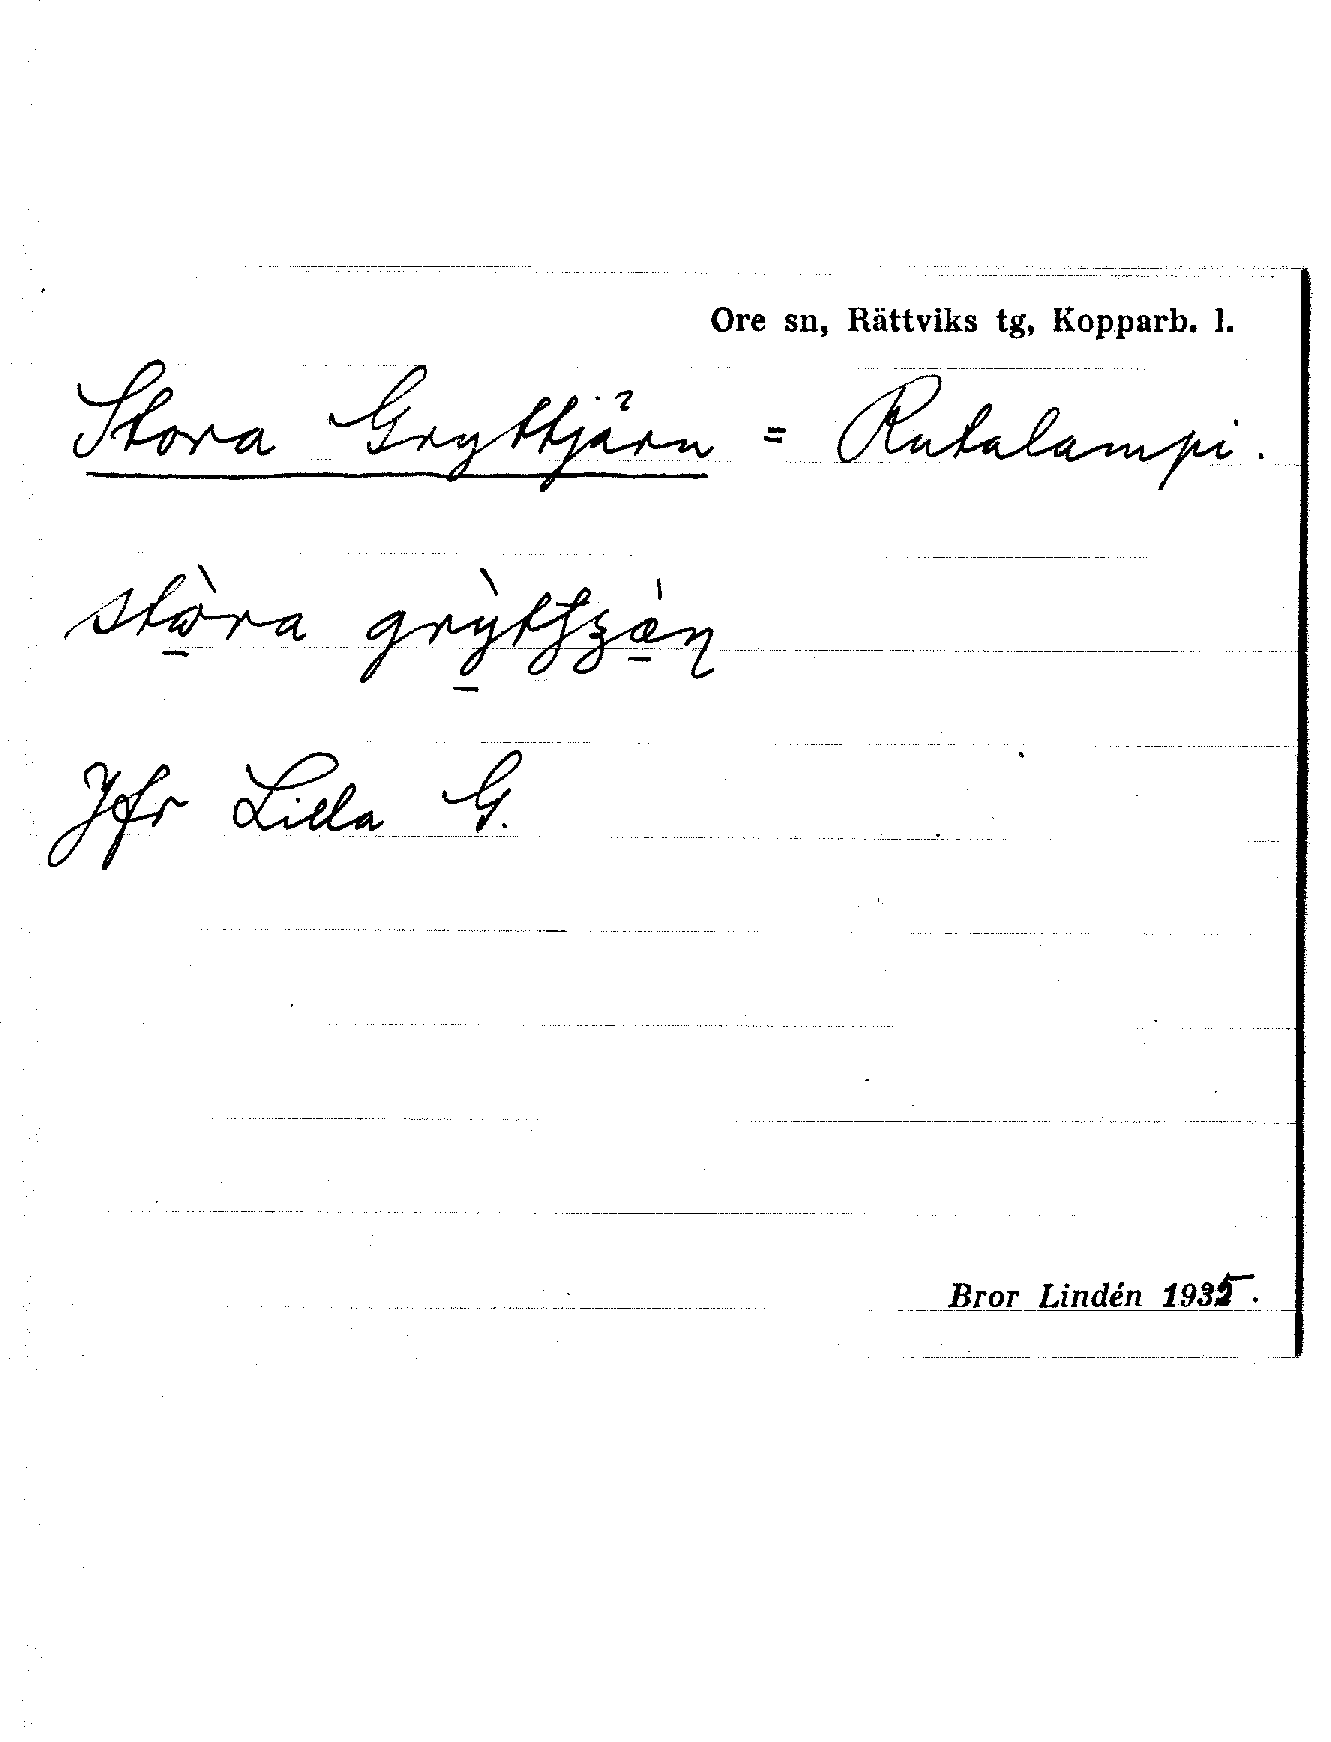 Ore sn, Rättviks tg, Kopparb. l.
Stora Gryttjärn = Rutalampi.
Jfr Lilla G.
Bror Lindén 1935.